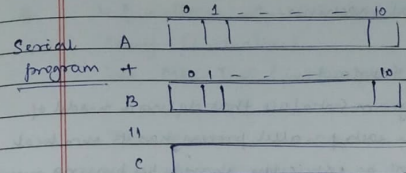 0 1 - - - - 10
Serial A
program +
0 1 - - - - 10
B
11
C